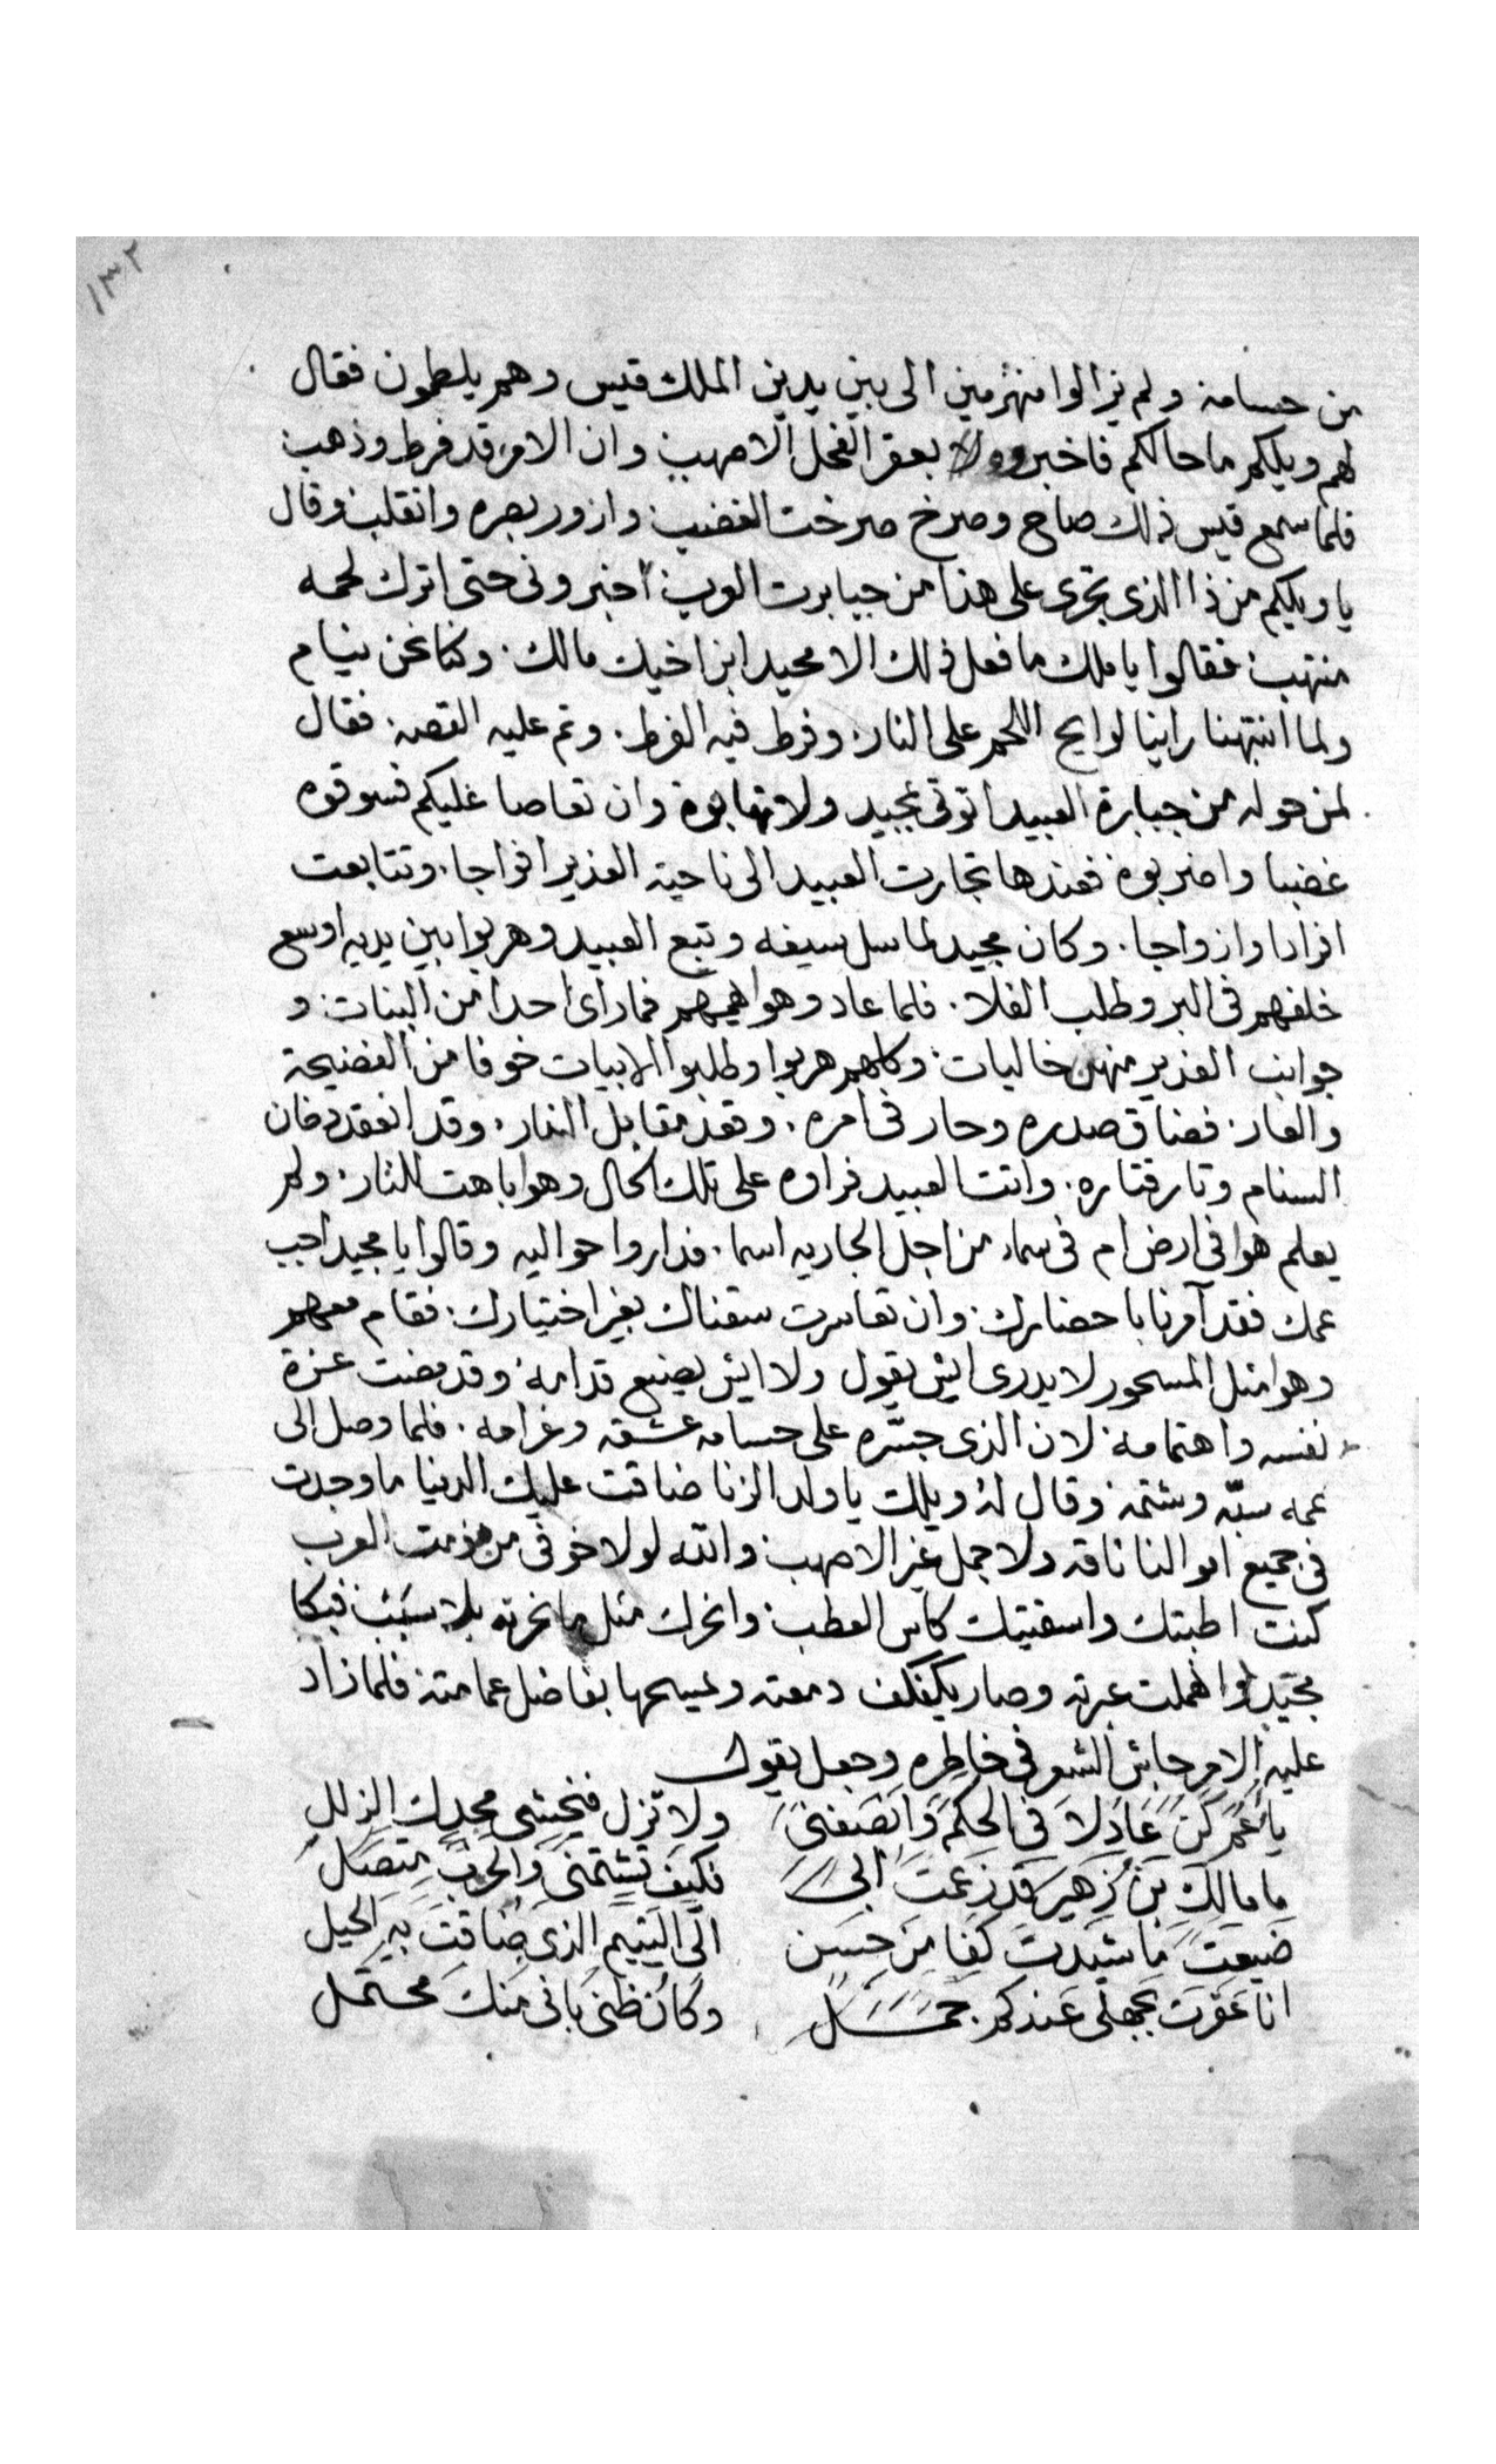 ١٣٢
من حسامه ولم يزالوا منهزمين الى بين يدين الملك قيس وهم يلطمون فقال
لهم ويلكم ما حالكم فاخبروه بعقر الفحل الاصهب وان الامر قد فرط وذهب
فلما سمع قيس ذلك صاح وصرخ صرخت الغضب وازور بصره وانقلب وقال
يا ويلكم من ذا الذى تجرى على هذا من جبابرت العرب اخبرونى حتى اترك لحمه
منتهب فقالوا يا ملك ما فعل ذلك الا مجيد ابن اخيك مالك وكنا نحن نيام
ولما انتبهنا راينا لوايح اللحم على النار وفرط فيه الفرط وتم عليه القصه فقال
لمن حوله من جبابرة العبيد اتونى بمجيد ولا تهابوه وان تعاصا عليكم فسوقوه
غضبا واضربوه فعندها تجارت العبيد الى ناحية الغدير افواجا وتتابعت
افرادا وازواجا وكان مجيد لما سل سيفه وتبع العبيد وهربوا بين يديه اوسع
خلفهم فى البر وطلب الفلا فلما عاد وهو فما راى احدا من البنات و
جوانب الغدير منهن خاليات وكلهم هربوا وطلبوا الابيات خوفا من الفضيحة
والعار فضاق صدره وحار فى امره وقعد مقابل النار وقد انعقد دخان
السنام وثار قتاره واتت العبيد فراوه على تلك الحال وهوا باهت للنار ولم
يعلم هوا فى ارض ام فى سماء من اجل الجاريه اسما فداروا حواليه وقالوا يا مجيد اجب
عمك فقد آمرنا باحضارك وان تعاسرت سقناك بغير اختيارك فقام معهم
وهوا مثل المسحور لا يدرى ايش يقول ولا ايش يصنع قدامه وقد مضت عزة
نفسه واهتمامه لان الذى جسّره على حسامه عشقه وغرامه فلما وصل الى
عمه سبّه وشتمه وقال له ويلك يا ولد الزنا ضاقت عليك الدنيا ما وجدت
فى جميع اموالنا ناقه ولا جمل غير الاصهب والله لولا خوفى من مذمت العرب
كنت اطبتك واسقيتك كاس العطب وانحرك مثل ما نحرته بلا سبب فبكا
مجيد واهملت عبرته وصار يكفكف دمعته ويمسحها بفاضل عمامته فلما زاد
عليه الامر جاش الشعر فى خاطره وجعل يقول
يا عم كن عادلا فى الحكم وانصفنى ولا تزل فيخشى مجدك الزلل
ما مالك بن زهير قد زعمت ابى فكيف تشتمنى والحرب متصل
ضيعت ما شيدت كفا من حسن الى اليتيم الذى ضاقت به الحيل
انا عقرت بجهلى عندكم جمل وكان ظنى بانى منك محتمل